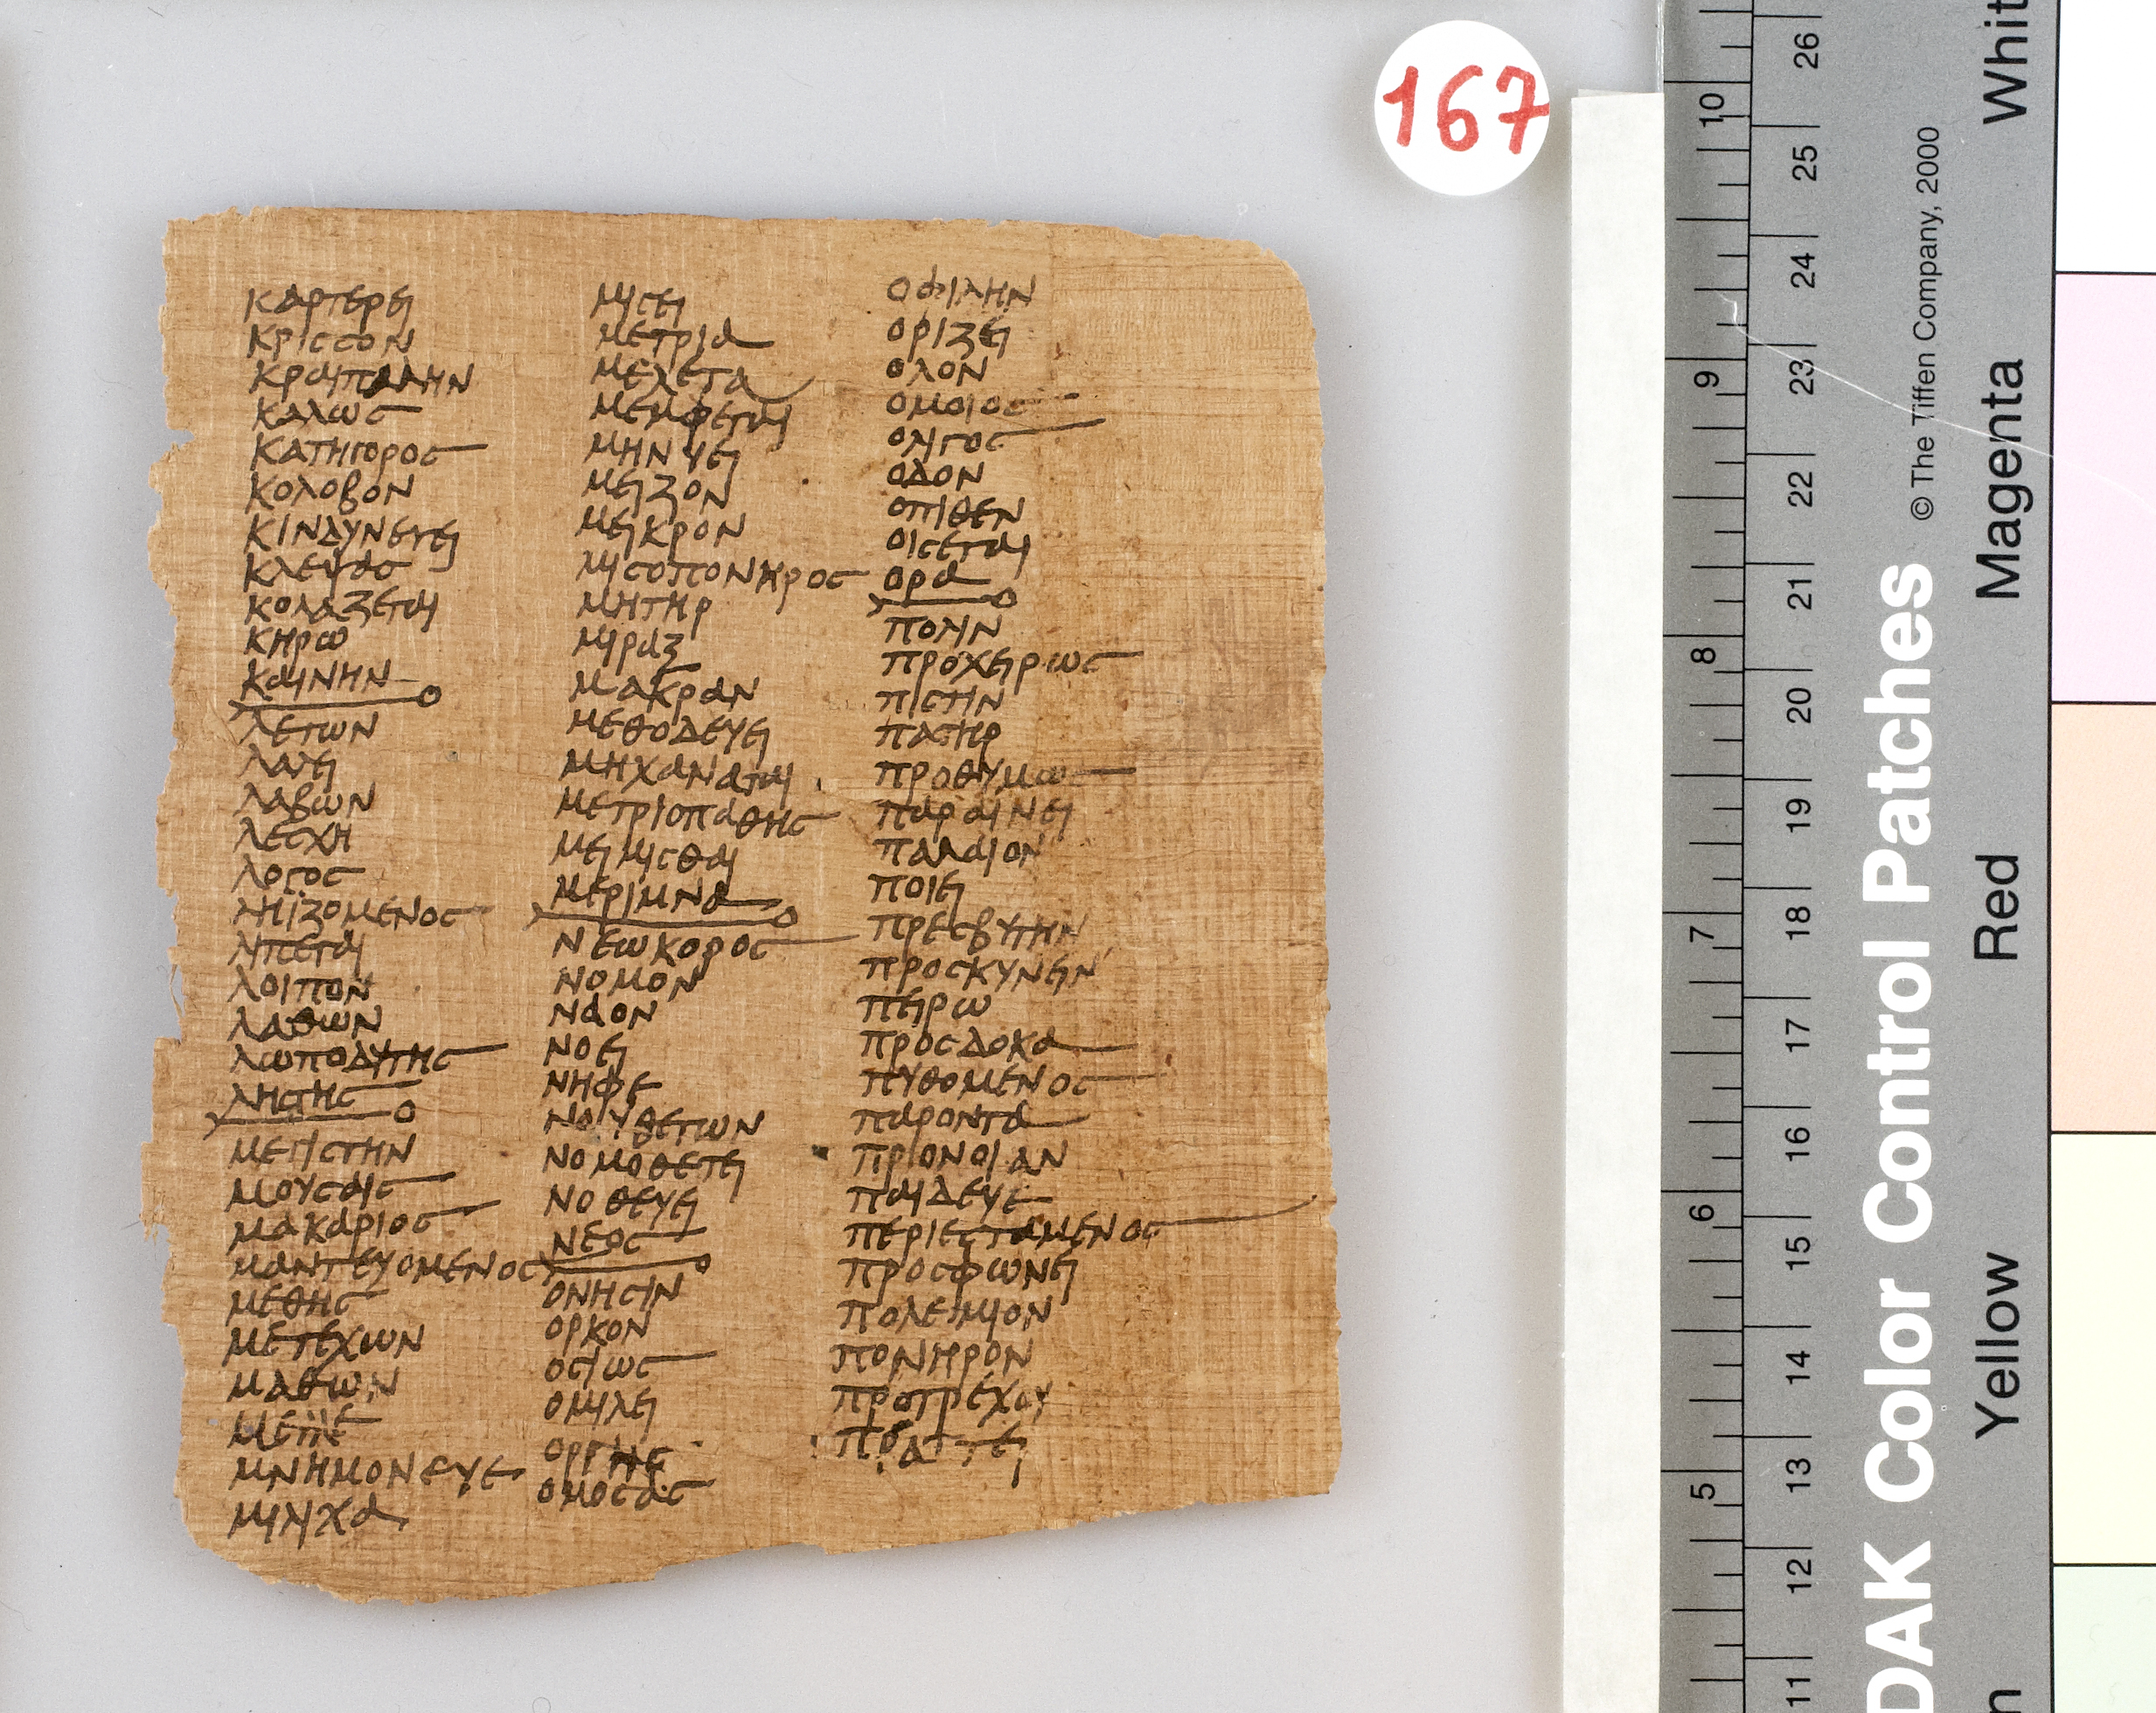 καρτερει
κρισσον
κραιπαλην
καλως
κατηγορος
κολοβον
κινδυνευει
κλεψας
κολαζεται
κηρω
καινην
λεγων
λαλει
λαβων
λεσχη
λογος
ληιζομενος
λιπεται
λοιπον
λαθων
λωποδυτης
ληστης
μεγιστην
μουσαις
μακαριος
μαντευομενος
μεθης
μετεχων
μαθων
μνημονευε
μιλιχα
μισει
μετρια
μελετα
μεμφεται
μηνυει
μειζον
μεικρον
μισοπονηρος
μητηρ
μιραξ
μακραν
μεθοδευει
μηχαναται
μετριοπαθης
μειμισθαι
μεριμνα
νεωκορος
νομον
ναον
νοει
νηφε
νουθετων
νομοθετει
νοθευει
νεος
ονησιν
ορκον
οσιως
ομιλει
οργης
ομοσας
οφιλην
οριζει
ολον
ομοιος
ολιγος
οδον
οπιθεν
οισεται
ορα
πολιν
προχειρως
πιστιν
πατηρ
προθυμως
παραινει
παλαιον
ποιει
πρεσβυτην
προσκυνειν
πειρω
προσδοκα
πυθομενος
παροντα
πρ[ονοιαν
παιδευε
περιεσταμενος
προσφωνει
πολεμιον
πονηρον
προτρεχου
πραττει
167
10
9
8
7
6
5
26
25
24
23
22
21
20
19
18
17
16
15
14
13
12
11
© The Tiffen Company, 2000
DAK Color Control Patches
Whit
Magenta
Red
Yellow
n